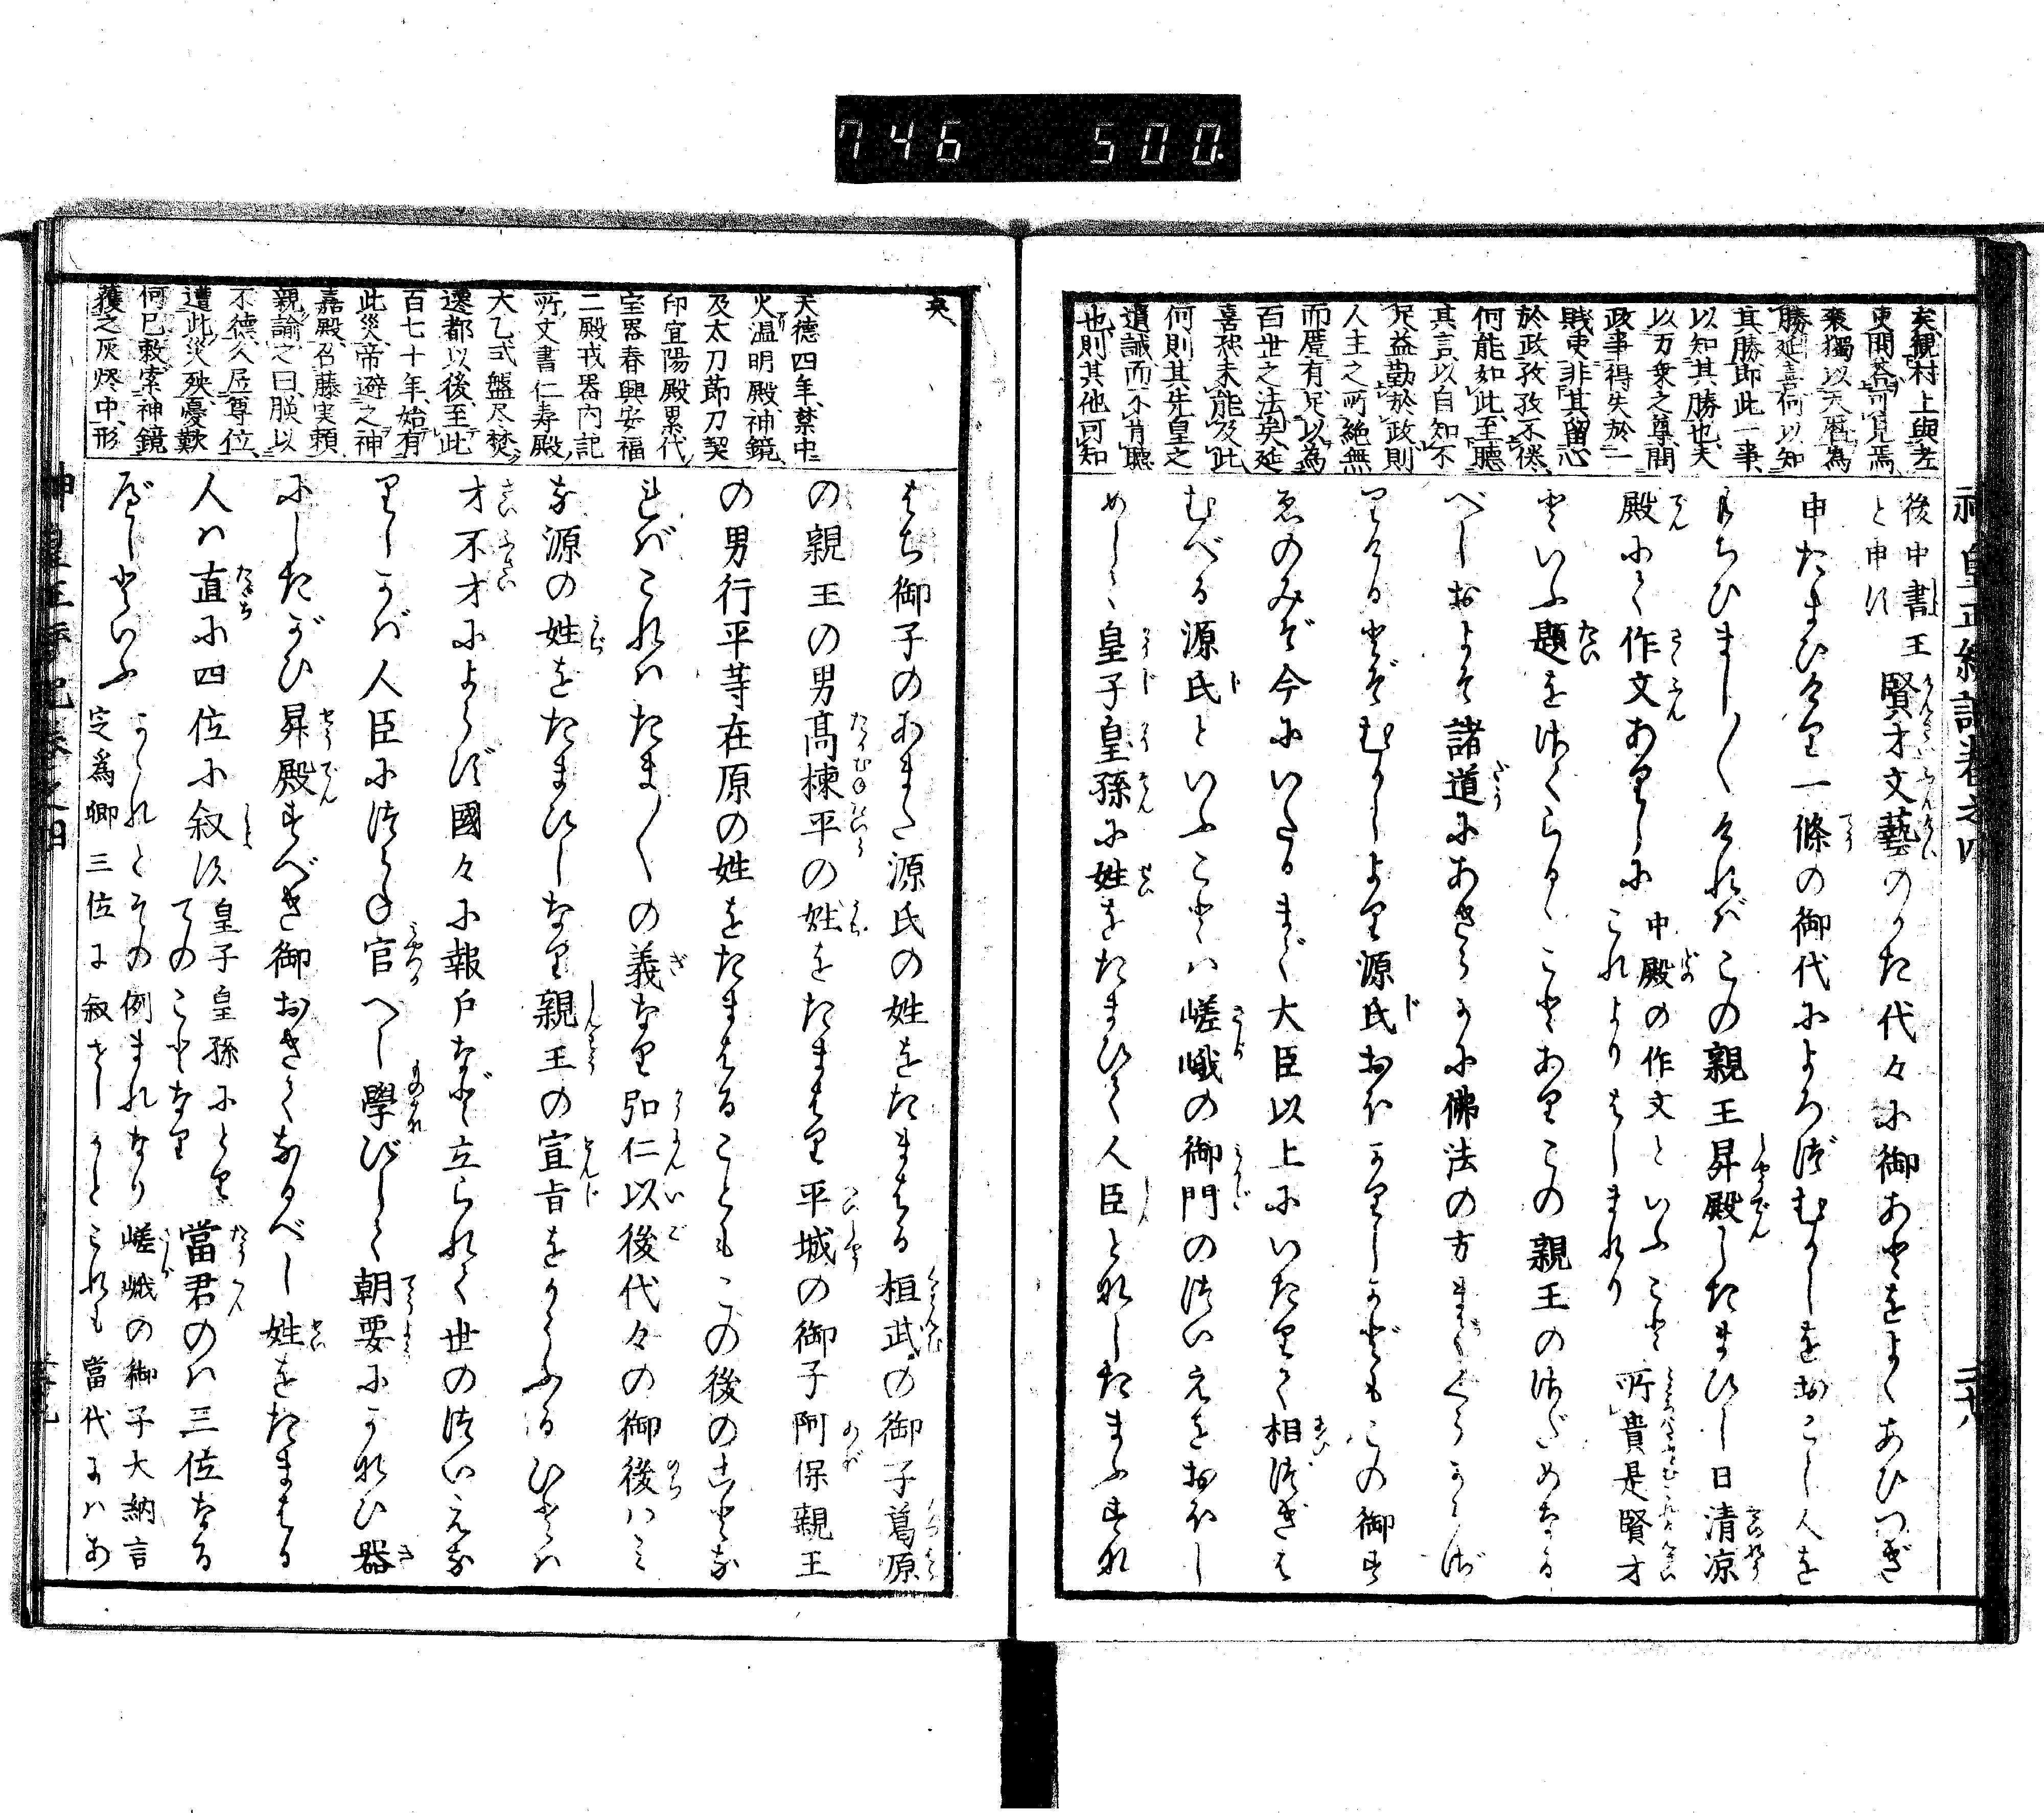 746 500.
神皇正統記巻之四
二十八
矣、観村上與老
吏問答可見焉、
豪獨以天暦為
勝延喜何以知
其勝即此一事、
以知其勝也、夫
以万衆之尊、問
政事得失於一
賤吏、非其留心
於政孜孜不倦、
何能如此、至聴
其言、以自知不
足益勤於政則
人主之所絶無
而廑有足以為
百世之法矣、延
喜秕未能及此
何則其先皇之
遺誡而不肯聴
也、則其他可知
後中書王
と申す
賢才文藝のかた代々に御あとをよくあひつぎ
申たまひけり一條の御代によろづむかしをおこし人を
もちひまし〳〵ければこの親王昇殿したまひし日清涼
殿にて作文ありしに
中殿の作文といふこと
これよりはしまれり
所貴是賢才
といふ題をつくらるゝことありこの親王のつためなる
べしおよそ諸道にあきらかに佛法の方まてくらからず
りけるとぞむかしより源氏おほかりしかどもこの御す
ゑのみぞ今にいたるまで大臣以上にいたりて相つぎは
むべる源氏といふことハ嵯峨の御門のつひえをおほし
めしゝ皇子皇孫に姓をたまひて人臣となしたまふすな
矣、
天徳四年、禁中
火温明殿、神鏡、
及太刀節刀契
印宜陽殿累代
宝器春興安福
二殿戎器内記
所文書仁寿殿、
大乙式盤尽焚
遷都以後、至此
百七十年、始有
此災、帝避之神
嘉殿、召藤実頼
親諭之曰、朕以
不德久居尊位、
遭此災殃、憂歎
何已敕索神鏡
獲之灰燼中、形
はち御子のあまた源氏の姓をたまはる桓武の御子葛原
の親王の男高棟平の姓をたまはり平城の御子阿保親王
の男行平等在原の姓をたまはることもこの後のことな
れバこれハたま〳〵の義なり弘仁以後代々の御後ハミ
な源の姓をたまひしなり親王の宣旨をかうふるひとハ
才不才によらず國々に報戸など立られて世のつひえな
りしかバ人臣につらね官へし學びして朝要にかなひ器
にしたがひ昇殿すべき御おきてなるべし姓をたまはる
人ハ直に四位に叙す
皇子皇孫にとり
てのことなり
當君のハ三位なる
べしといふ
かゝれとその例まれなり嵯峨の御子大納言
定為卿三位に叙せしかとこれも當代にハあ
神皇正統記巻之四